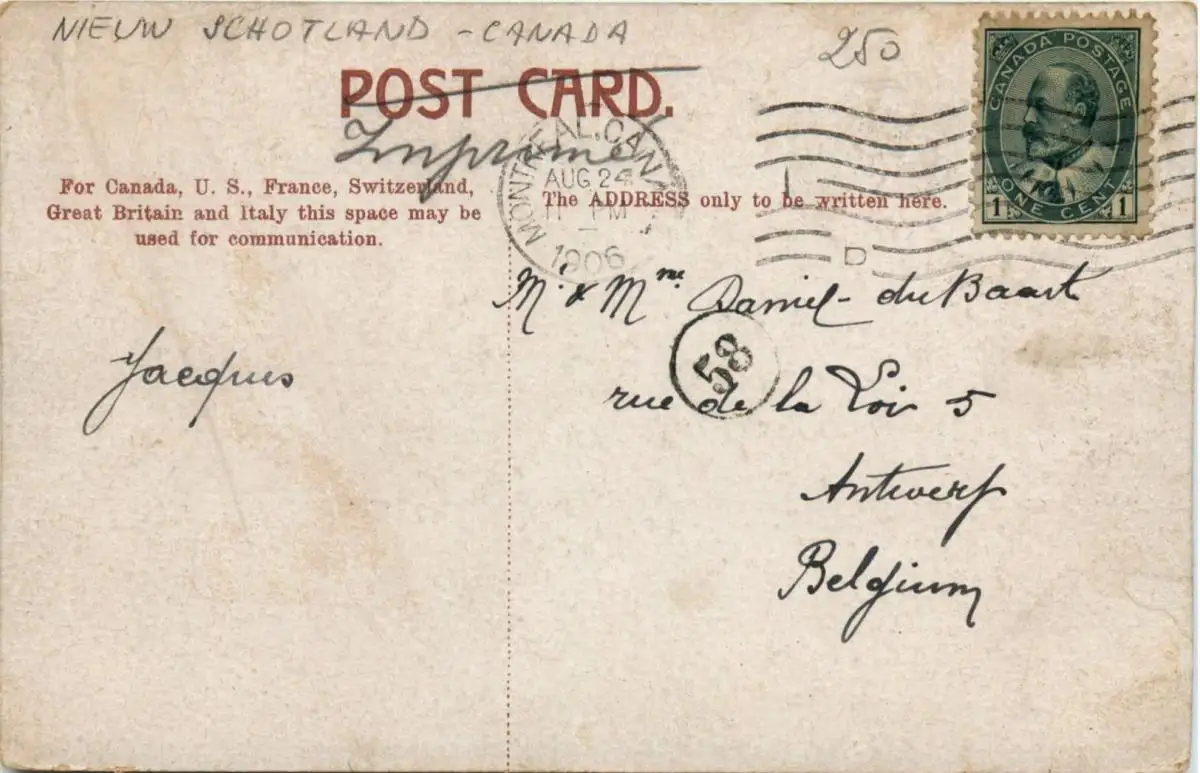 NIEUW SCHOTLAND - CANADA
250
POST CARD.
Imprimé
CANADA POSTAGE
1 ONE CENT 1
MONTREAL, CANADA
AUG 24
11 PM
1906
For Canada, U. S., France, Switzerland,
Great Britain and Italy this space may be
used for communication.
The ADDRESS only to be written here.
Mr & Mme Daniel - du Baart
58
rue de la Loi 5
Antwerp
Belgium
Jacques